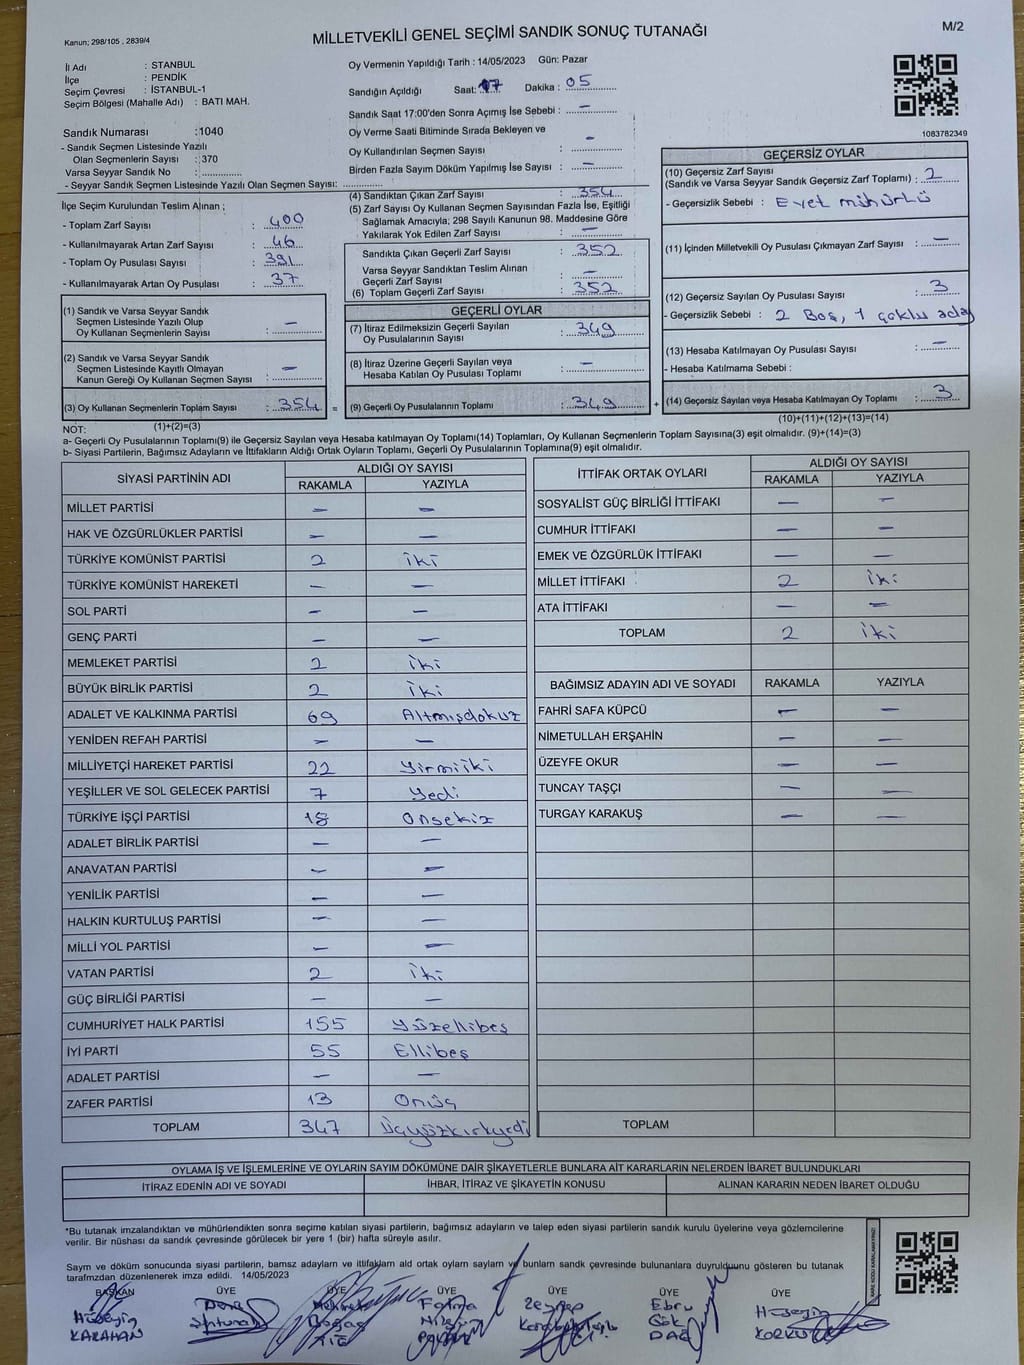 M/2
Kanun; 298/105 , 2839/4
MİLLETVEKİLİ GENEL SEÇİMİ SANDIK SONUÇ TUTANAĞI
İl Adı : STANBUL
İlçe : PENDİK
Seçim Çevresi : İSTANBUL-1
Seçim Bölgesi (Mahalle Adı) : BATI MAH.
Oy Vermenin Yapıldığı Tarih : 14/05/2023 Gün: Pazar
Sandığın Açıldığı Saat: 17 Dakika : 05
Sandık Saat 17:00'den Sonra Açımış İse Sebebi : –
Oy Verme Saati Bitiminde Sırada Bekleyen ve
Oy Kullandırılan Seçmen Sayısı : –
Birden Fazla Sayım Döküm Yapılmış İse Sayısı : –
Sandık Numarası :1040
- Sandık Seçmen Listesinde Yazılı
Olan Seçmenlerin Sayısı : 370
Varsa Seyyar Sandık No :
- Seyyar Sandık Seçmen Listesinde Yazılı Olan Seçmen Sayısı:
İlçe Seçim Kurulundan Teslim Alınan ;
- Toplam Zarf Sayısı : 400
- Kullanılmayarak Artan Zarf Sayısı : 46
- Toplam Oy Pusulası Sayısı : 391
- Kullanılmayarak Artan Oy Pusulası : 37
(1) Sandık ve Varsa Seyyar Sandık
Seçmen Listesinde Yazılı Olup
Oy Kullanan Seçmenlerin Sayısı : –
(2) Sandık ve Varsa Seyyar Sandık
Seçmen Listesinde Kayıtlı Olmayan
Kanun Gereği Oy Kullanan Seçmen Sayısı : –
(3) Oy Kullanan Seçmenlerin Toplam Sayısı : 354 =
(1)+(2)=(3)
(4) Sandıktan Çıkan Zarf Sayısı : 354
(5) Zarf Sayısı Oy Kullanan Seçmen Sayısından Fazla İse, Eşitliği
Sağlamak Amacıyla; 298 Sayılı Kanunun 98. Maddesine Göre
Yakılarak Yok Edilen Zarf Sayısı : –
Sandıkta Çıkan Geçerli Zarf Sayısı : 352
Varsa Seyyar Sandıktan Teslim Alınan
Geçerli Zarf Sayısı : –
(6) Toplam Geçerli Zarf Sayısı : 352
GEÇERLİ OYLAR
(7) İtiraz Edilmeksizin Geçerli Sayılan
Oy Pusulalarının Sayısı : 349
(8) İtiraz Üzerine Geçerli Sayılan veya
Hesaba Katılan Oy Pusulası Toplamı : –
(9) Geçerli Oy Pusulalarının Toplamı : 349 +
1083782349
GEÇERSİZ OYLAR
(10) Geçersiz Zarf Sayısı
(Sandık ve Varsa Seyyar Sandık Geçersiz Zarf Toplamı) : 2
- Geçersizlik Sebebi : Evet mühürlü
(11) İçinden Milletvekili Oy Pusulası Çıkmayan Zarf Sayısı : –
(12) Geçersiz Sayılan Oy Pusulası Sayısı : 3
- Geçersizlik Sebebi : 2 Boş, 1 çoklu aday
(13) Hesaba Katılmayan Oy Pusulası Sayısı : –
- Hesaba Katılmama Sebebi :
(14) Geçersiz Sayılan veya Hesaba Katılmayan Oy Toplamı : 3
(10)+(11)+(12)+(13)=(14)
NOT:
a- Geçerli Oy Pusulalarının Toplamı(9) ile Geçersiz Sayılan veya Hesaba katılmayan Oy Toplamı(14) Toplamları, Oy Kullanan Seçmenlerin Toplam Sayısına(3) eşit olmalıdır. (9)+(14)=(3)
b- Siyasi Partilerin, Bağımsız Adayların ve İttifakların Aldığı Ortak Oyların Toplamı, Geçerli Oy Pusulalarının Toplamına(9) eşit olmalıdır.
SİYASİ PARTİNİN ADI ALDIĞI OY SAYISI
RAKAMLA YAZIYLA
MİLLET PARTİSİ – –
HAK VE ÖZGÜRLÜKLER PARTİSİ – –
TÜRKİYE KOMÜNİST PARTİSİ 2 iki
TÜRKİYE KOMÜNİST HAREKETİ – –
SOL PARTİ – –
GENÇ PARTİ – –
MEMLEKET PARTİSİ 2 iki
BÜYÜK BİRLİK PARTİSİ 2 iki
ADALET VE KALKINMA PARTİSİ 69 Altmışdokuz
YENİDEN REFAH PARTİSİ – –
MİLLİYETÇİ HAREKET PARTİSİ 22 Yirmiiki
YEŞİLLER VE SOL GELECEK PARTİSİ 7 Yedi
TÜRKİYE İŞÇİ PARTİSİ 18 Onsekiz
ADALET BİRLİK PARTİSİ – –
ANAVATAN PARTİSİ – –
YENİLİK PARTİSİ – –
HALKIN KURTULUŞ PARTİSİ – –
MİLLİ YOL PARTİSİ – –
VATAN PARTİSİ 2 iki
GÜÇ BİRLİĞİ PARTİSİ – –
CUMHURİYET HALK PARTİSİ 155 Yüzellibeş
İYİ PARTİ 55 Ellibeş
ADALET PARTİSİ – –
ZAFER PARTİSİ 13 Onüç
TOPLAM 347 Üçyüzkırkyedi
İTTİFAK ORTAK OYLARI ALDIĞI OY SAYISI
RAKAMLA YAZIYLA
SOSYALİST GÜÇ BİRLİĞİ İTTİFAKI – –
CUMHUR İTTİFAKI – –
EMEK VE ÖZGÜRLÜK İTTİFAKI – –
MİLLET İTTİFAKI 2 iki
ATA İTTİFAKI – –
TOPLAM 2 iki
BAĞIMSIZ ADAYIN ADI VE SOYADI RAKAMLA YAZIYLA
FAHRİ SAFA KÜPCÜ – –
NİMETULLAH ERŞAHİN – –
ÜZEYFE OKUR – –
TUNCAY TAŞÇI – –
TURGAY KARAKUŞ – –
TOPLAM
OYLAMA İŞ VE İŞLEMLERİNE VE OYLARIN SAYIM DÖKÜMÜNE DAİR ŞİKAYETLERLE BUNLARA AİT KARARLARIN NELERDEN İBARET BULUNDUKLARI
İTİRAZ EDENİN ADI VE SOYADI İHBAR, İTİRAZ VE ŞİKAYETİN KONUSU ALINAN KARARIN NEDEN İBARET OLDUĞU
*Bu tutanak imzalandıktan ve mühürlendikten sonra seçime katılan siyasi partilerin, bağımsız adayların ve talep eden siyasi partilerin sandık kurulu üyelerine veya gözlemcilerine
verilir. Bir nüshası da sandık çevresinde görülecek bir yere 1 (bir) hafta süreyle asılır.
Sayım ve döküm sonucunda siyasi partilerin, bamsz adaylarn ve ittifaklarn ald ortak oylarn saylarn ve bunlarn sandk çevresinde bulunanlara duyrulduunu gösteren bu tutanak
tarafmzdan düzenlenerek imza edildi. 14/05/2023
BAŞKAN ÜYE ÜYE ÜYE ÜYE ÜYE ÜYE
Hüseyin Fatma Zeynep Ebru Hüseyin
KARAHAN Gök KORKUT
DAĞ